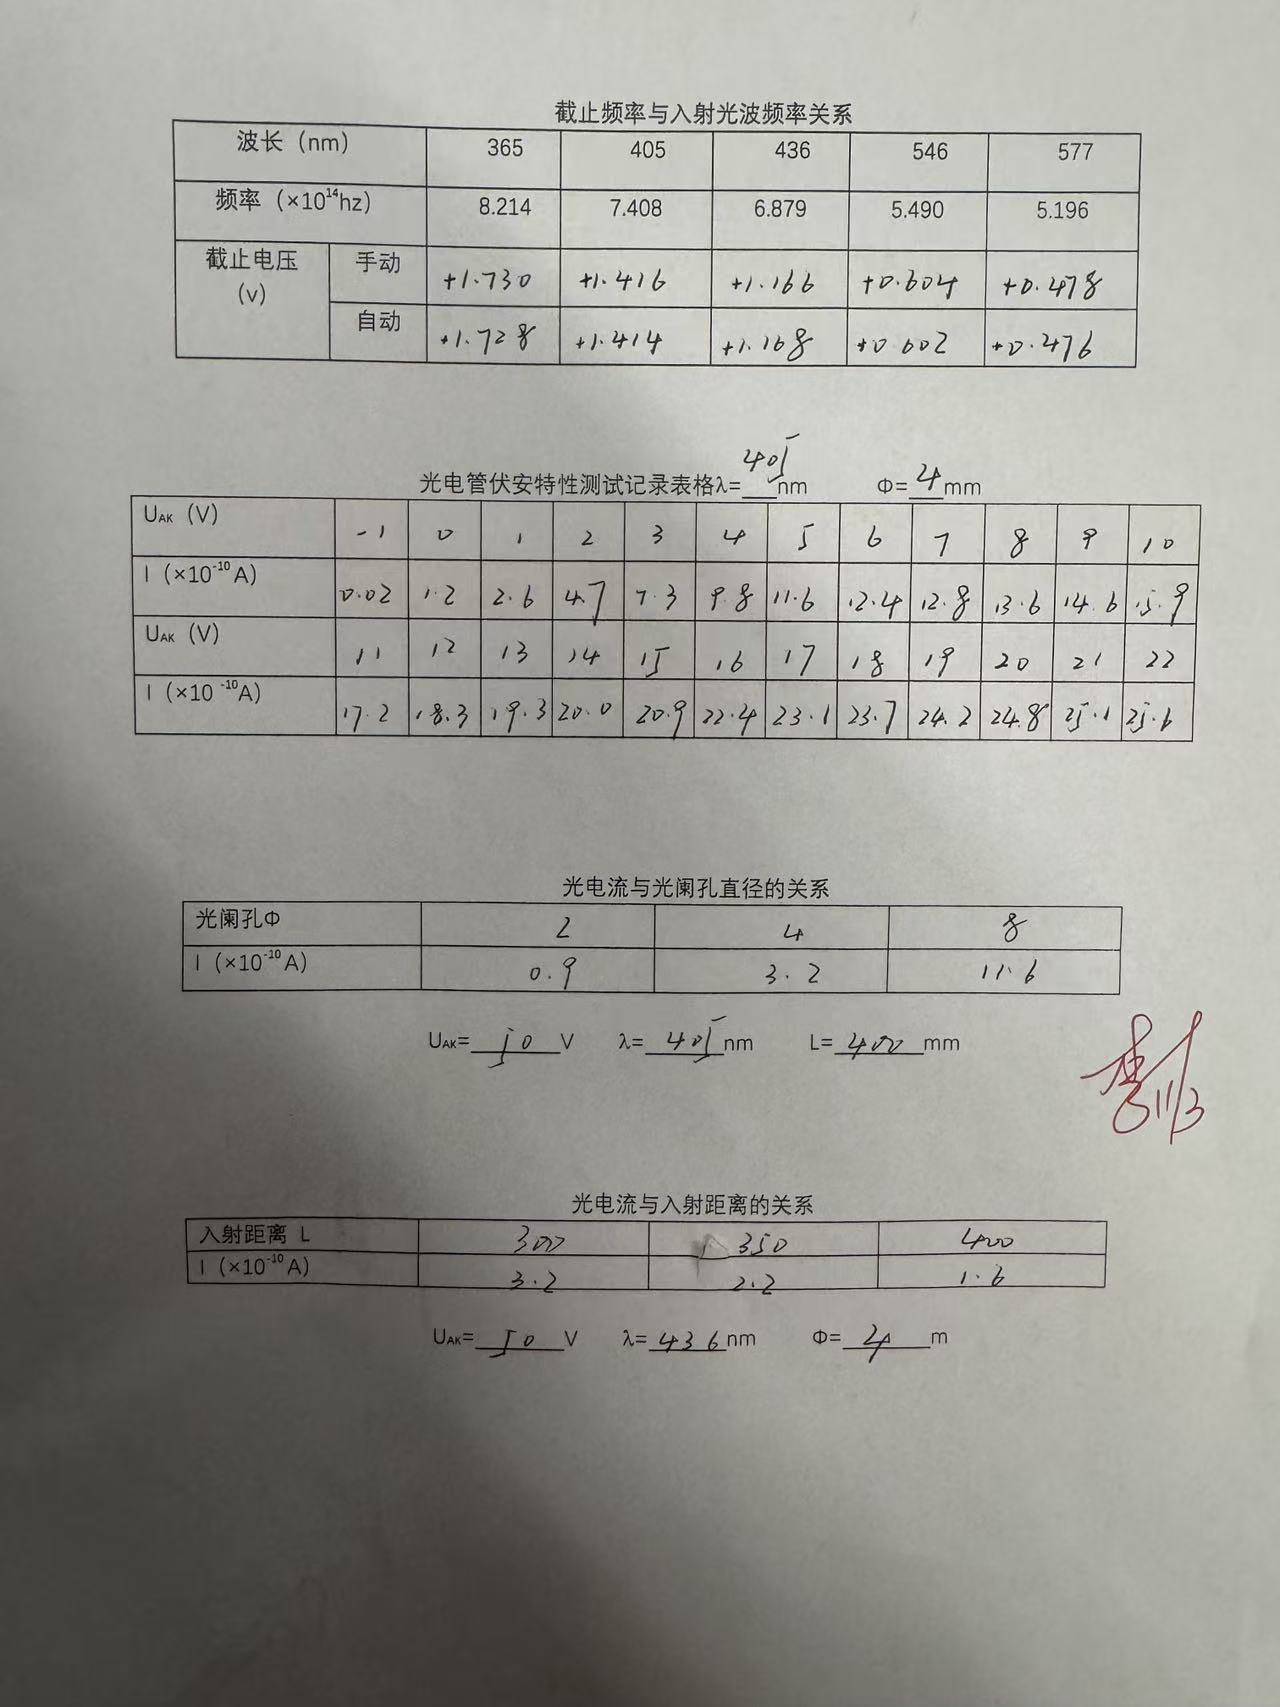 截止频率与入射光波频率关系
波长（nm） 365 405 436 546 577
频率（×10¹⁴hz） 8.214 7.408 6.879 5.490 5.196
截止电压（v） 手动 +1.730 +1.416 +1.166 +0.604 +0.478
自动 +1.728 +1.414 +1.168 +0.602 +0.476
光电管伏安特性测试记录表格λ=405nm Φ=4mm
UAK（V） -1 0 1 2 3 4 5 6 7 8 9 10
I（×10⁻¹⁰A） 0.02 1.2 2.6 4.7 7.3 9.8 11.6 12.4 12.8 13.6 14.6 15.9
UAK（V） 11 12 13 14 15 16 17 18 19 20 21 22
I（×10⁻¹⁰A） 17.2 18.3 19.3 20.0 20.9 22.4 23.1 23.7 24.2 24.8 25.1 25.6
光电流与光阑孔直径的关系
光阑孔Φ 2 4 8
I（×10⁻¹⁰A） 0.9 3.2 11.6
UAK=50V λ=405nm L=400mm
11/3
光电流与入射距离的关系
入射距离 L 300 350 400
I（×10⁻¹⁰A） 3.2 2.2 1.6
UAK=50V λ=436nm Φ=4m